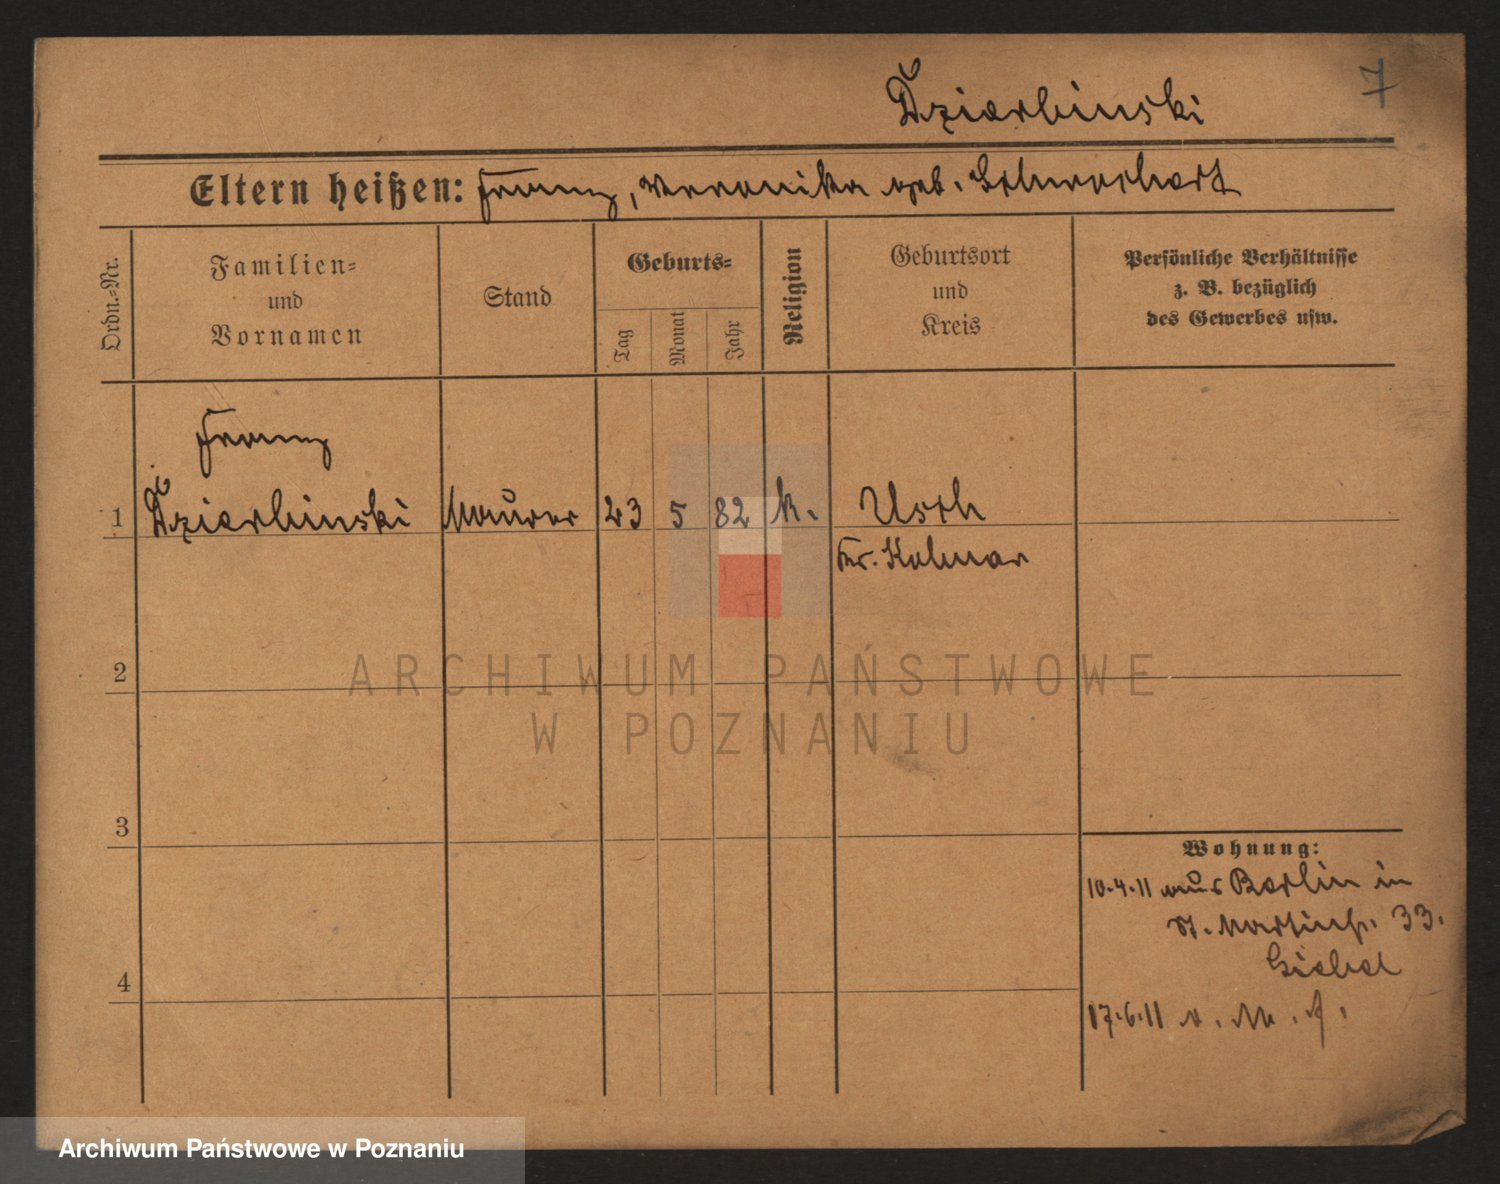 Dzierbinski
7
Eltern heißen: Franz, Veronika geb.
Ordn.=Nr.
Familien=
und
Vornamen
Stand
Geburts=
Tag
Monat
Jahr
Religion
Geburtsort
und
Kreis
Persönliche Verhältnisse
z. B. bezüglich
des Gewerbes usw.
Franz
1 Dzierbinski Maurer 23 5 82 k. Usch
Kr. Kolmar
2
3
4
Wohnung:
10.4.11 aus Berlin in
St. Martinstr. 33.
Giebel
17.6.11
ARCHIWUM PAŃSTWOWE
W POZNANIU
Archiwum Państwowe w Poznaniu